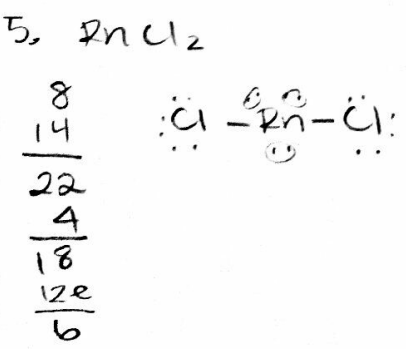 5. RnCl2
8
14
22
4
18
12e
6
:Cl – Rn – Cl: